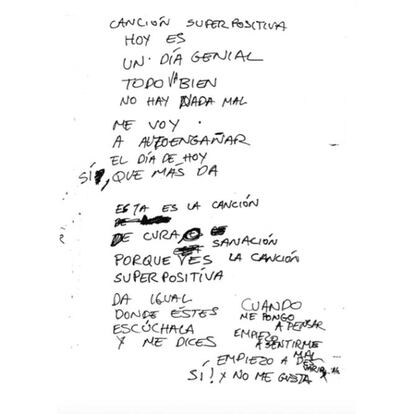 CANCIÓN SUPERPOSITIVA
HOY ES
UN DÍA GENIAL
TODO VA BIEN
NO HAY NADA MAL
ME VOY
A AUTOENGAÑAR
EL DÍA DE HOY
SÍ, QUE MÁS DA
ESTA ES LA CANCIÓN
DE CURA
SANACIÓN
PORQUE ES LA CANCIÓN
SUPERPOSITIVA
DA IGUAL
DONDE ESTÉS
ESCÚCHALA
Y ME DICES
CUANDO
ME PONGO
A PENSAR
EMPIEZO
A SENTIRME
MAL
EMPIEZO A
SÍ! Y NO ME GUSTA